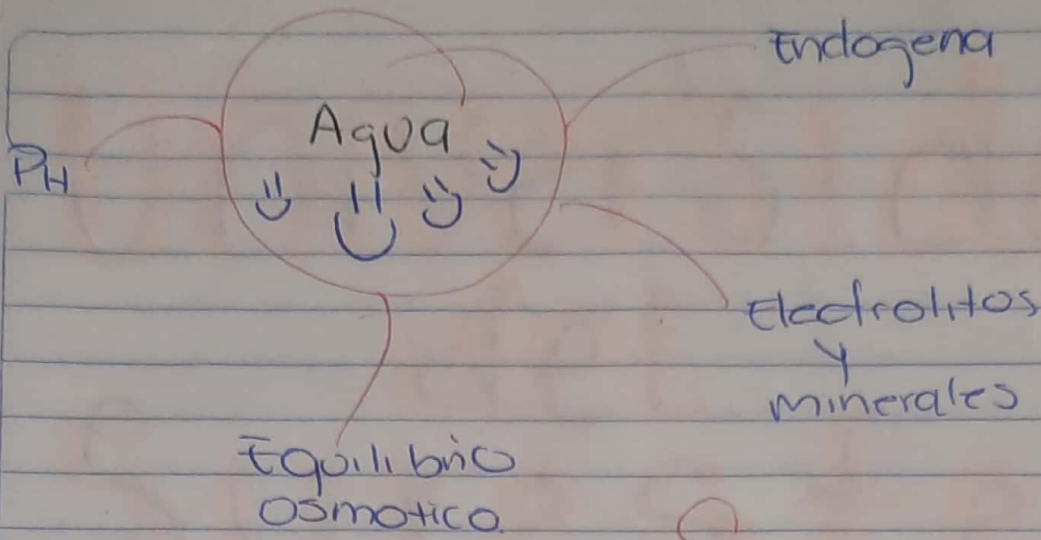 Endogena
Agua
PH
Electrolitos
y
minerales
Equilibrio
Osmotico